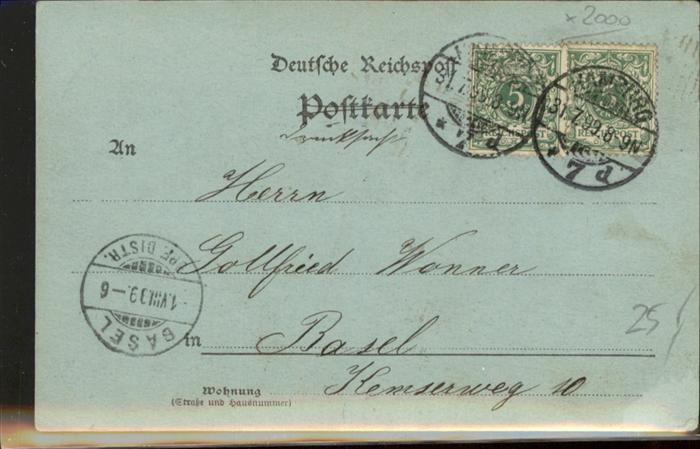 x 2000
Deutsche Reichspost
Postkarte
Drucksache
An
Herrn
Gottfried Wonner
in Basel
Wohnung
(Straße und Hausnummer)
Hemserweg 10
25
5
REICHSPOST
HAMBURG
31.7.99.8-9N
P 7 *
BASEL
1.VIII.99.-6
BRF. DISTR.